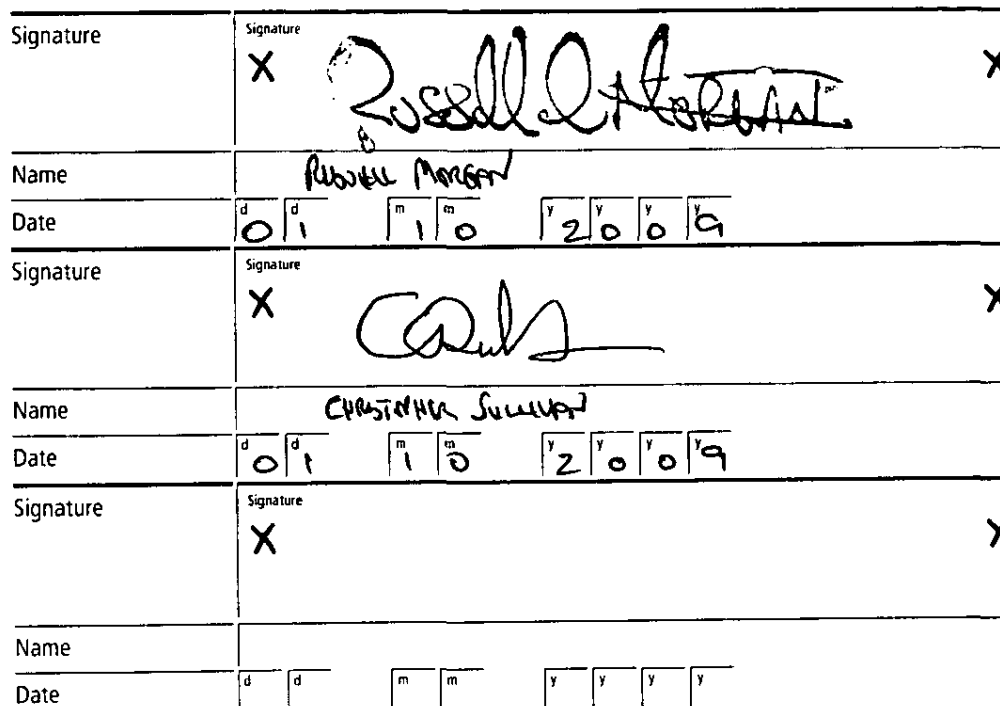 Signature
Signature
X X
Russell Morgan
Name RUSSELL MORGAN
Date d 0 d 1 m 1 m 0 y 2 y 0 y 0 y 9
Signature
Signature
X X
Name CHRISTOPHER SULLIVAN
Date d 0 d 1 m 1 m 0 y 2 y 0 y 0 y 9
Signature
Signature
X X
Name
Date d d m m y y y y